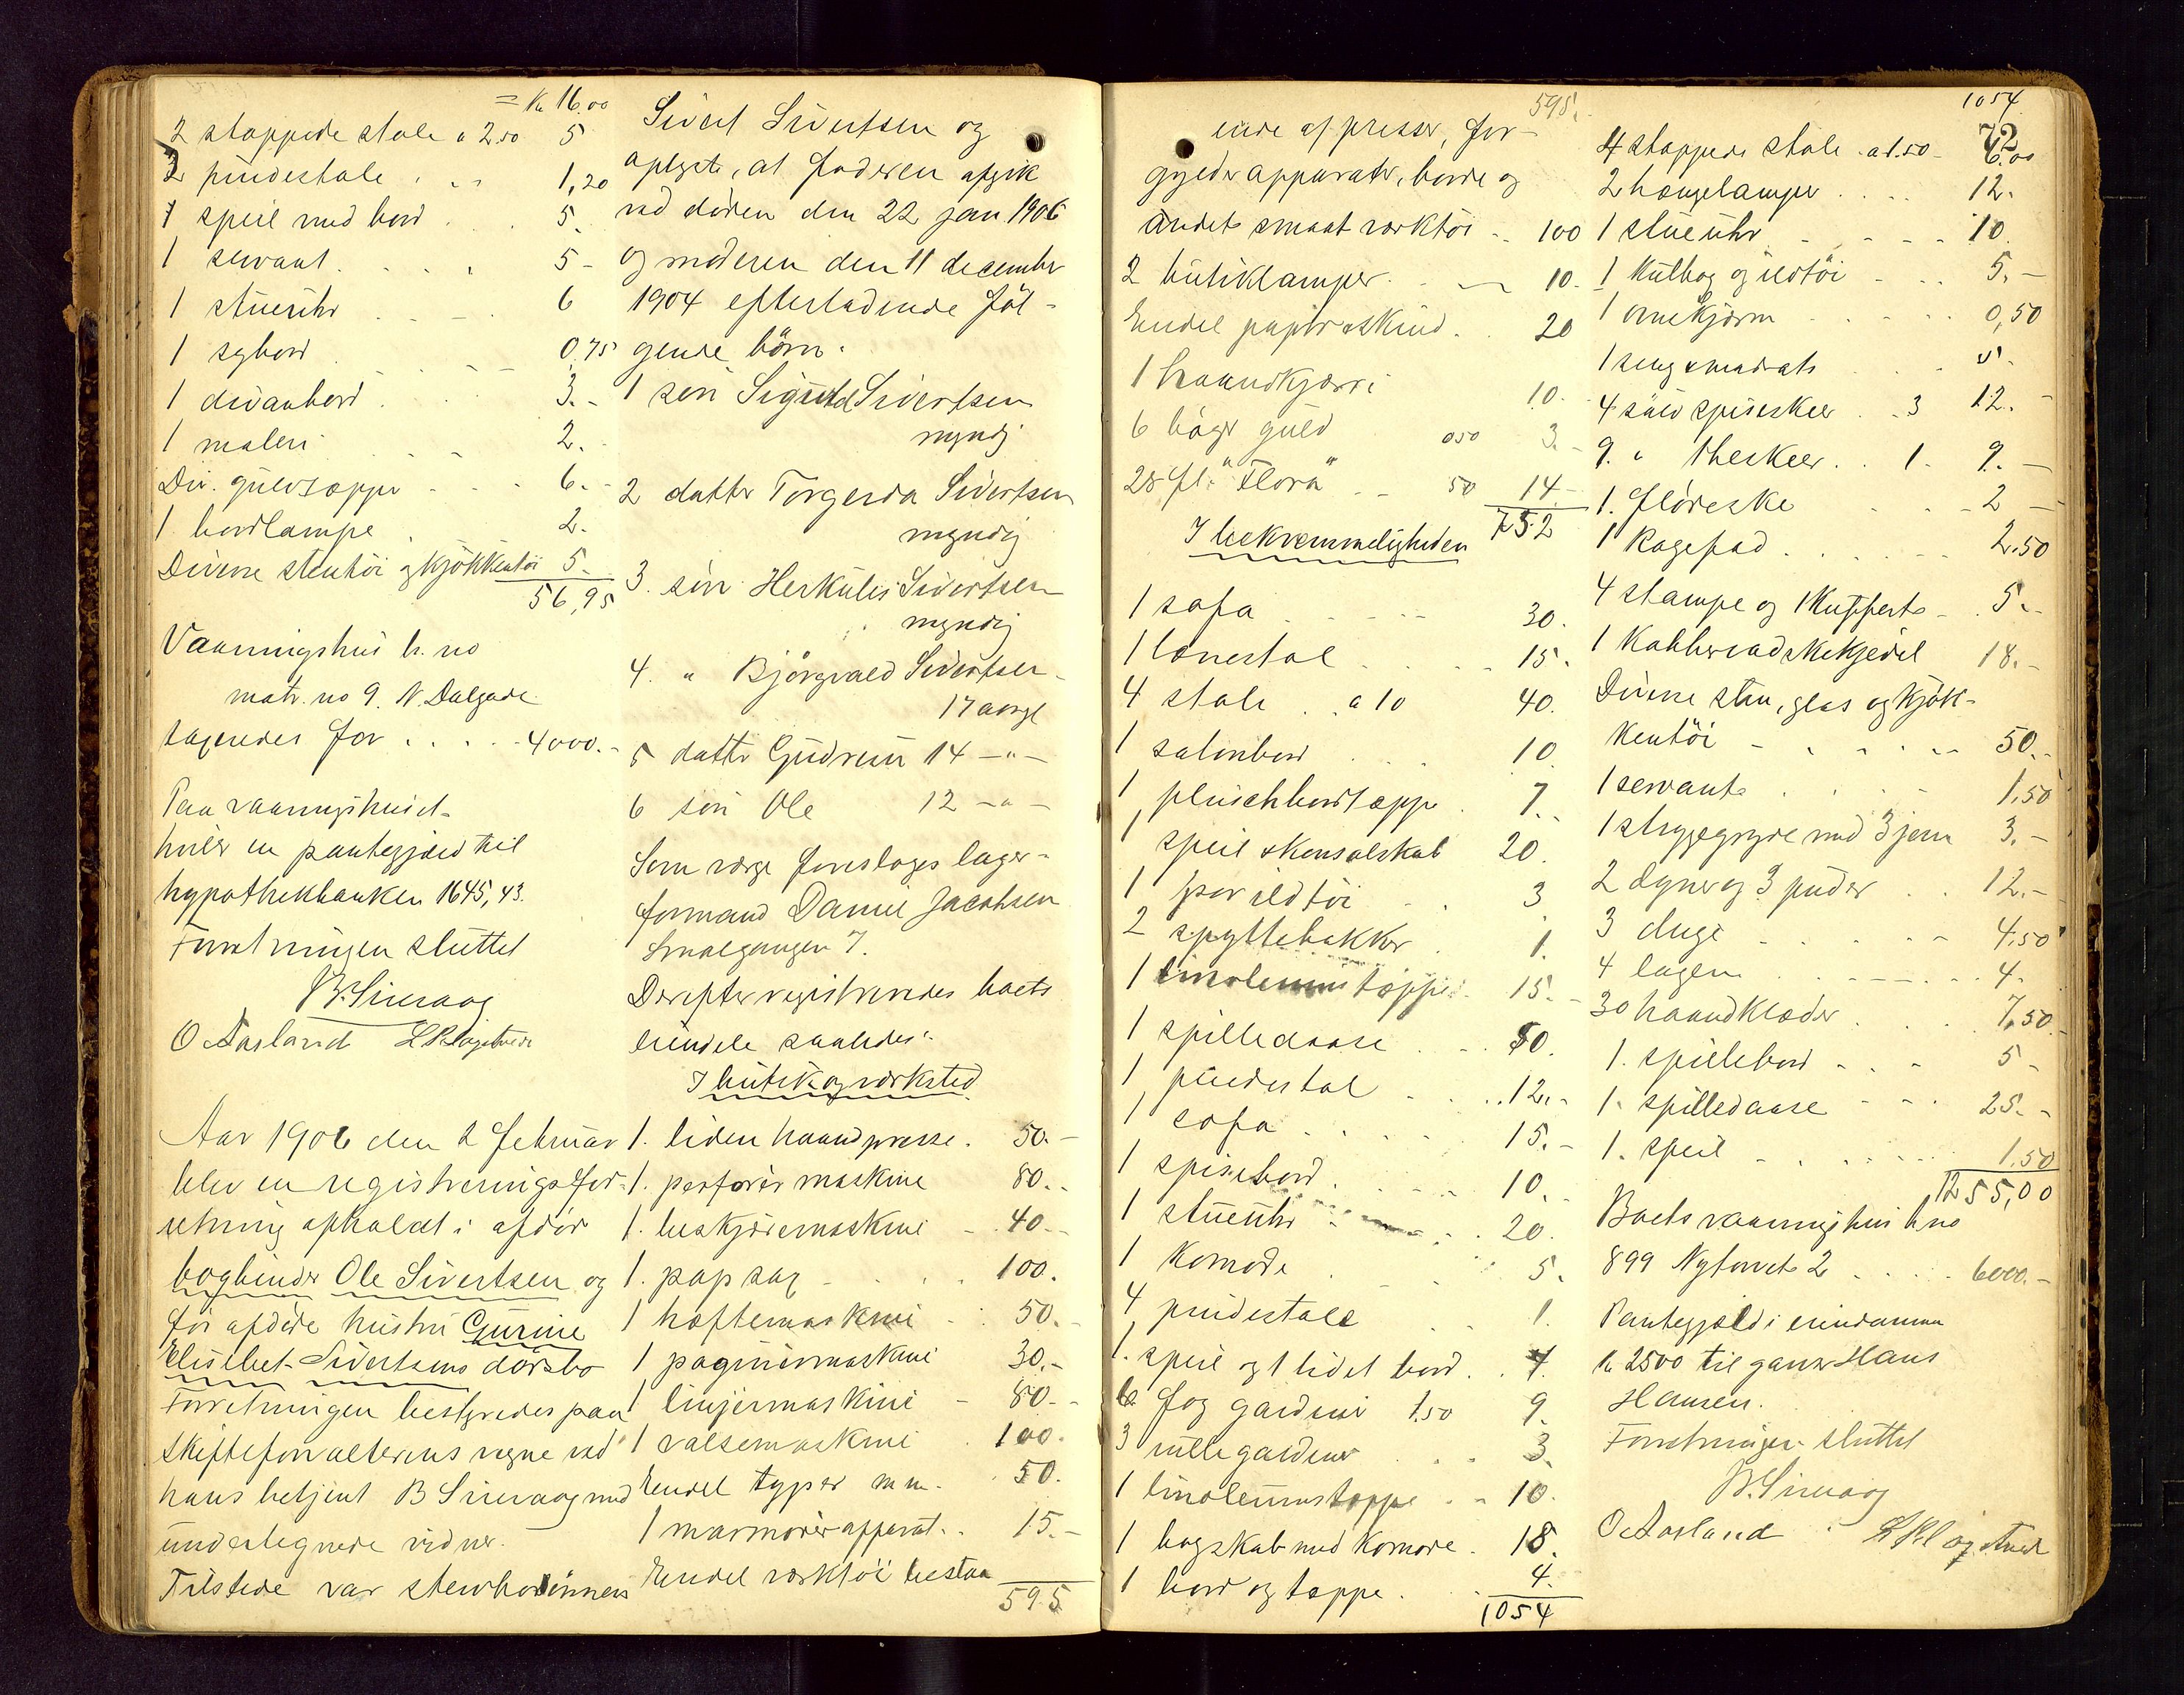 = Kr 16.00
2 stoppede stole a 2.50 5
3 pindestole . . 1,20
1 speil med bord . . 5.
1 servant . . . . 5 -
1 stueuhr . . . . 6
1 sybord . . . 0.75
1 divanbord . . . 3.-
1 maleri . . . 2.
Div. gulvtæpper - - - 6.-
1 bordlampe . 2.
Diverse stentöi og kjökkentöi 5.
56,95
Vaaningshus b. no
matr. no 9. N. Dalgade
tageredes for . . . . 4000.-
Paa vaaningshuset
hviler en pantegjæld til
hypothekbanken 1645,43.
Forretningen sluttet
B. Sirevaag
O Aasland L Kløgetvedt
Aar 1906 den 2 februar
blev en registreringsfor-
retning afholdt i afdøde
bogbinder Ole Sivertsen og
før afdøde hustru Gurine
Elisebet Sivertsens dødsbo
Forretningen bestyredes paa
skifteforvalterens vegne ved
hans betjent B Sirevaag med
undertegnede vidner.
Tilstede var sterbosønnen
Sivert Sivertsen og
oplyste, at faderen afgik
ved döden den 22 jan. 1906
og moderen den 11 december
1904 efterladende föl-
gende börn:
1 sön Sigurd Sivertsen
myndig
2 datter Torgerda Sivertsen
myndig
3. sön Herkules Sivertsen
myndig
4. " Bjørgvald Sivertsen
17 aar gl
5 datter Gudrun 14 -"-
6 sön Ole 12 -"-
Som værge foresloges lager-
formand Daniel Jacobsen
Smalgangen 7.
Derefter registreredes boets
eiendele saaledes:
I butik og værksted
1. liden haandpresse. 50.-
1. perforér maskine 80.-
1. beskjæremaskine - 40.-
1. papsax - . . . 100.
1 hæftemaskine . . 50.-
1 paginérmaskine 30.-
1 linjermaskine - 80.-
1 valsemaskine . 100.
Endel typer m m. . 50.
1 marmorérapparat . . 15.-
Endel værktöi bestaa
595
595.
ende af presser, for-
gylderapparater, borde og
andet smaat værktöi . . 100
2 butiklamper . . 10.-
Endel papir & skind . . 20
1 haandkjærre 10.-
6 böger guld 050 3.-
28 fl. "Flora" - - 50 14 -
752
I bekvemmeligheden
1 sofa . . . . . 30.
1 lænestol . . . . 15.
4 stole . . a 10 40.
1 salonbord . . . 10.
1 pluschbordtæppe . 7.-
1 speil & konsolskab 20.
1 par ildtöi . . 3
2 spyttebakker . 1.
1 linoleumstæppe . 15.-
1 spilledaase . . . 50.
1 pindestol . . . 12.-
1 sofa . . . . . 15.-
1 spisebord . . . . 10.-
1 stueuhr . . . 20.
1 komode . . . 5.
4 pindestole . . 1.
1. speil og 1 lidet bord . . 4.
6 fag gardiner 1.50 9.
3 rullegardiner . . 3.
1 linoleumstæppe . . 10.
1 bogskab med komode . 18.
1 bord og tæppe . . 4.
1054
1054
72
4 stoppede stole . a 1.50 - 6.00
2 hængelamper . . . . 12.
1 stueuhr . - - - - 10.
1 kulbox og ildtöi - . . 5.-
1 ovnskjærm . . . . . 0,50
1 seng & madrats . . . 5.-
4 sölv spiseskeer . . 3 12.-
9. " theskeer . . 1. 9.-
1. flödeske . . . - 2 -
1 kagefad . . . . . . 2.50
4 stampe og 1 kuffert - . 5.-
1 kobbervadskekjedel 18.-
Diverse sten, glas og kjök-
kentöi - . . . . . 50.-
1 servant . . . . . 1.50
1 strygegryde med 3 jern 3.-
2 dyner og 3 puder . . 12.-
3 duge . . . . . 4.50
4 lagen . . . . . . 4.
30 haandklæder . . . . 7.50
1. spillebord - . . . 5 -
1. spilledaase - - . 25.-
1. speil - . . . . . . 1.50
1255,00
Boets vaaningshus b no
899 Nytorvet 2 . . . . 6000.-
Pantegjæld i eiendommen
kr 2500 til garver Hans
Hansen.
Forretningen sluttet
B. Sirevaag
O. Aasland L Kløgetvedt